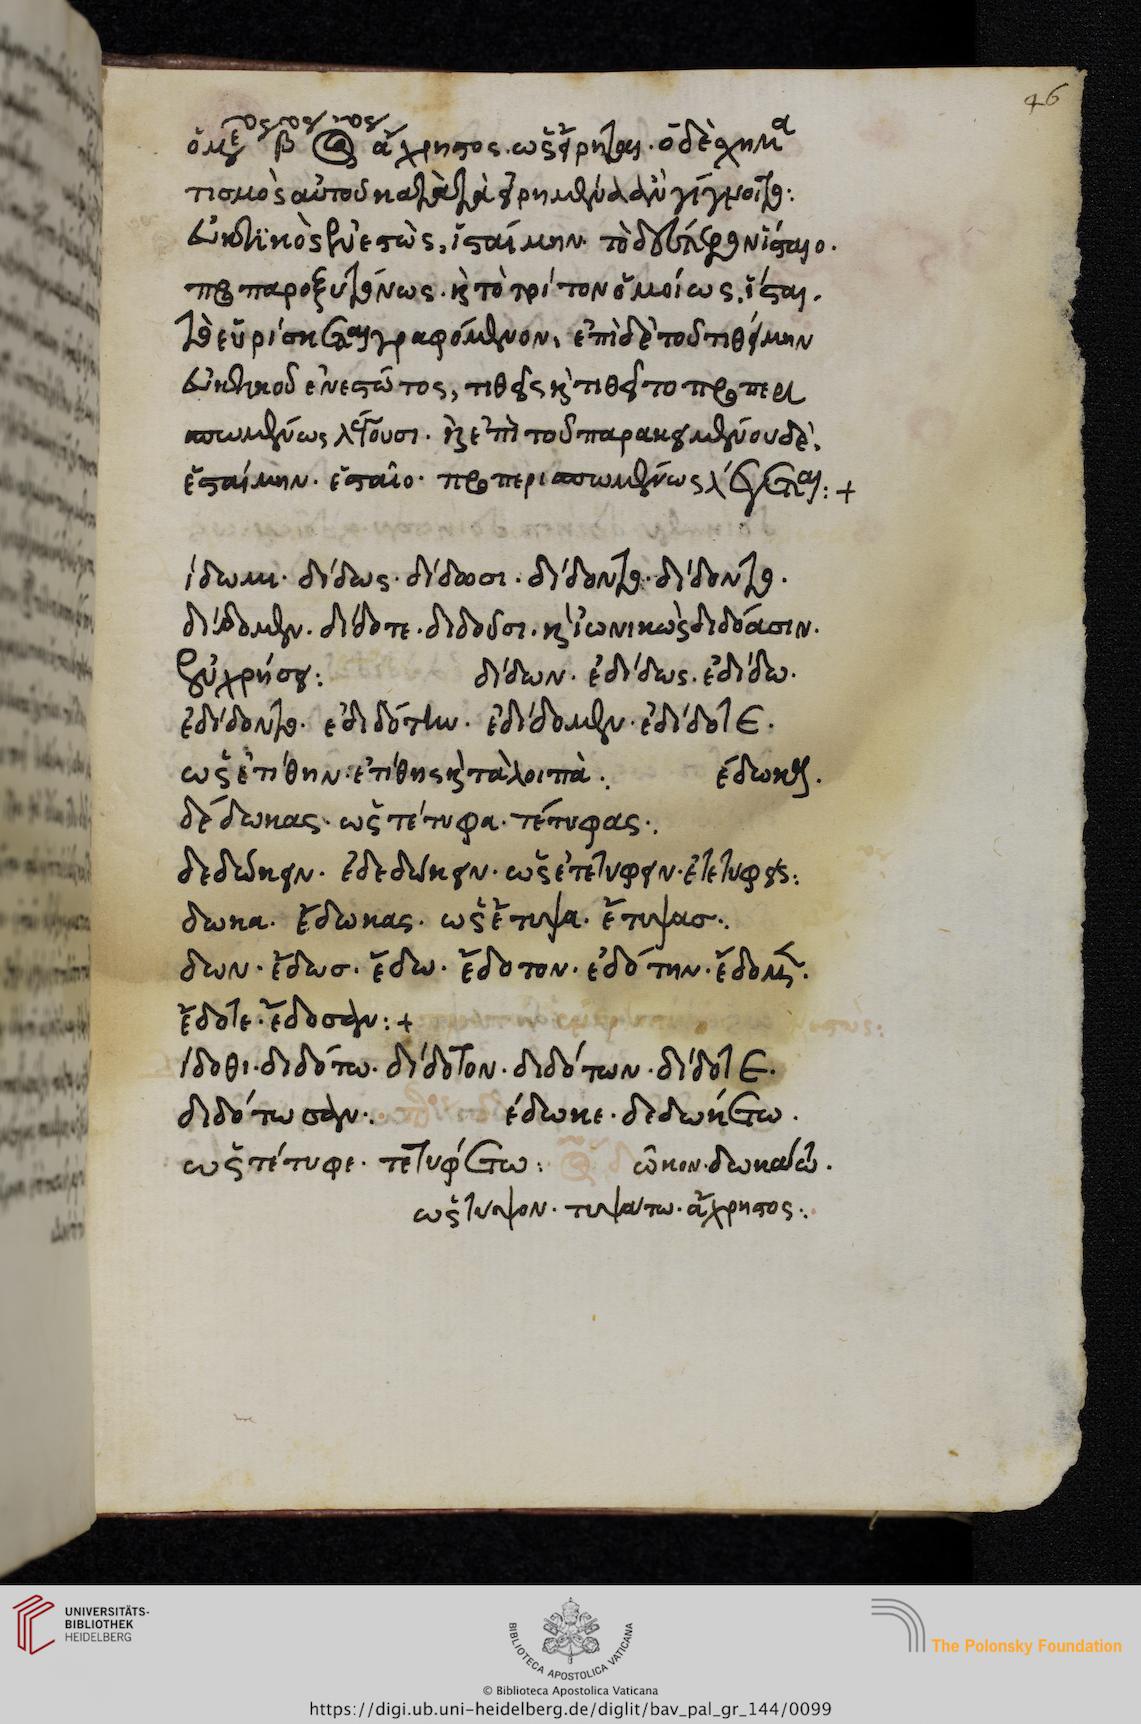 46
ὁ μέσος β ἀόριστος ἄχρηστος. ὡς εἴρηται. ὁ δὲ σχημα
τισμὸς αὐτοῦ κατὰ τὰ εἰρημένα ἂν γίγνοιτο:
εὐκτικὸς ἐνεστὼς, ἱσταίμην. τὸ δεύτερον ἵσταιο.
προπαροξυτόνως. καὶ τὸ τρίτον ὁμοίως, ἵσται
το εὑρίσκεται γραφόμενον, ἐπὶ δὲ τοῦ τιθείμην
εὐκτικοῦ ἐνεστῶτος, τιθεῖο καὶ τιθεῖτο προπερι
σπωμένως λέγουσι. καὶ ἐπὶ τοῦ παρακειμένου δὲ,
ἑσταίμην. ἑσταῖο. προπερισπωμένως λέγεται: +
ίδωμι. δίδως. δίδωσι. δίδοντον. δίδοντον.
δίδομεν. δίδοτε. διδοῦσι. καὶ ἰωνικῶς διδόασιν.
ἐν χρήσει: δίδων. ἐδίδως. ἐδίδω.
ἐδίδοντον. ἐδιδότην. ἐδίδομεν. ἐδίδοτε.
ὡς ἐτίθην. ἐτίθης καὶ τὰ λοιπὰ: έδωκα.
δέδωκας. ὡς τέτυφα. τέτυφας:
δεδώκειν. ἐδεδώκειν. ὡς ἐτετύφειν. ἐτετύφεις:
δωκα. ἔδωκας. ὡς ἔτυψα. ἔτυψας:
δων. ἔδως. ἔδω. ἔδοτον. ἐδότην. ἔδομεν.
ἔδοτε. ἔδοσαν: +
ίδοθι. διδότω. δίδοτον. διδότων. δίδοτε.
διδότωσαν: έδωκε. δεδωκέτω.
ὡς τέτυφε. τετυφέτω: ῶκον. δωκάτω.
ὡς τύψον. τυψάτω. ἄχρηστος:
UNIVERSITÄTS-
BIBLIOTHEK
HEIDELBERG
BIBLIOTECA APOSTOLICA VATICANA
The Polonsky Foundation
© Biblioteca Apostolica Vaticana
https://digi.ub.uni-heidelberg.de/diglit/bav_pal_gr_144/0099